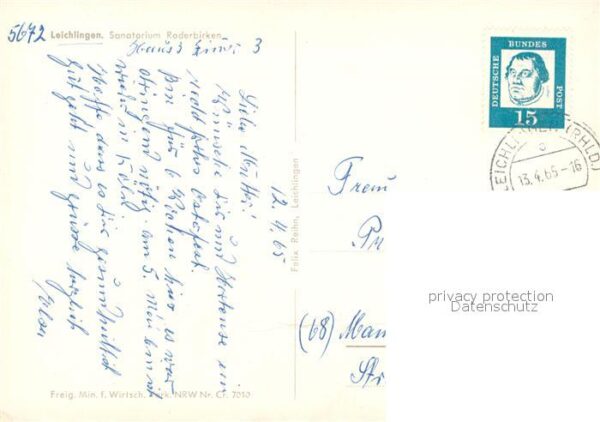 5672
Leichlingen. Sanatorium Roderbirken
Haus 3 Zimmer 3
12.4.65
Liebe Mutti!
Wünsche Dir und Hortense ein
recht frohes Osterfest.
Bin für 6 Wochen hier es war
dringend nötig. am 5. Mai bin ich
wieder in Köln.
Hoffe dass es Dir gesundheitlich
gut geht und grüsse herzlich
Felix Reihn, Leichlingen
DEUTSCHE
BUNDES
POST
15
LEICHLINGEN (RHLD)
13.4.65-16
(68) Man
Str
privacy protection
Datenschutz
Freig. Min. f. Wirtsch. Verk. NRW Nr. Cr. 7010